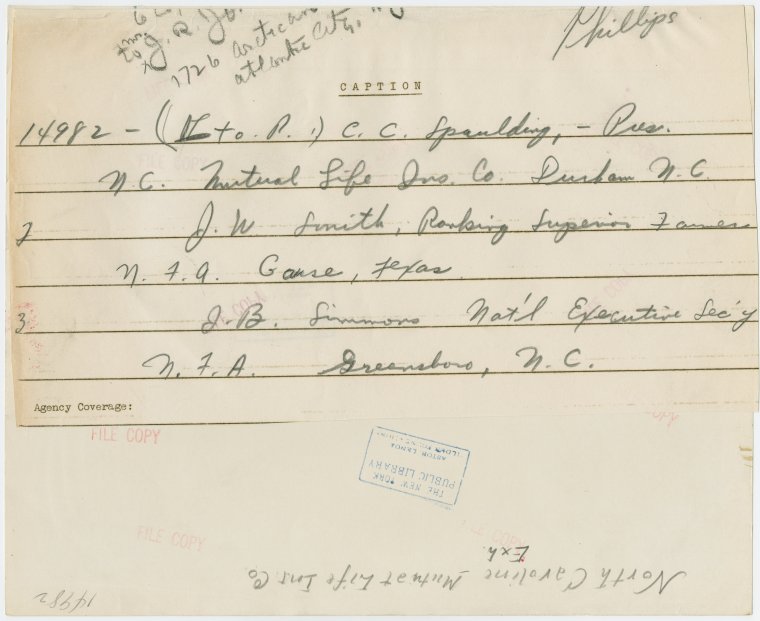 Phillips
to J. R.
1726 Arctic
Atlantic City,
CAPTION
14982 - (L to R.) C. C. Spaulding, - Pres.
N.C. Mutual Life Ins. Co. Durham N.C.
2 J. W. Smith, Ranking Superior Famer
N. F. A. Gause, Texas
3 J. B. Simmons Nat'l Executive Sec'y
N. F. A. Greensboro, N. C.
Agency Coverage:
FILE COPY
THE NEW YORK
PUBLIC LIBRARY
ASTOR LENOX
FILE COPY
Exh.
North Caroline Mutual Life Ins. Co.
14982